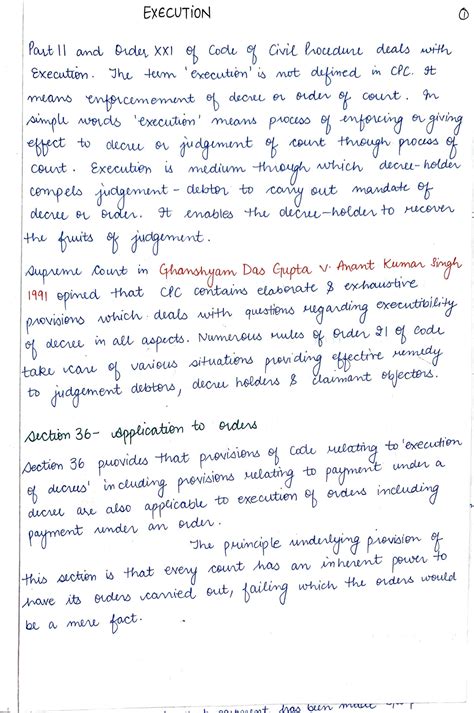 EXECUTION
1
Part II and Order XXI of Code of Civil Procedure deals with
Execution. The term 'execution' is not defined in CPC. It
means enforcemement of decree or order of court. In
simple words 'execution' means process of enforcing or giving
effect to decree or judgement of court through process of
court. Execution is medium through which decree-holder
compels judgement-debtor to carry out mandate of
decree or order. It enables the decree-holder to recover
the fruits of judgement.
Supreme Court in Ghanshyam Das Gupta v. Anant Kumar Singh
1991 opined that CPC contains elaborate & exhaustive
provisions which deals with questions regarding executibility
of decree in all aspects. Numerous rules of Order 21 of code
take care of various situations providing effective remedy
to judgement debtors, decree holders & claimant objectors.
Section 36- Application to orders
Section 36 provides that provisions of Code relating to 'execution
of decrees' including provisions relating to payment under a
decree are also applicable to execution of orders including
payment under an order.
The principle underlying provision of
this section is that every court has an inherent power to
have its orders carried out, failing which the orders would
be a mere fact.
payment has been made